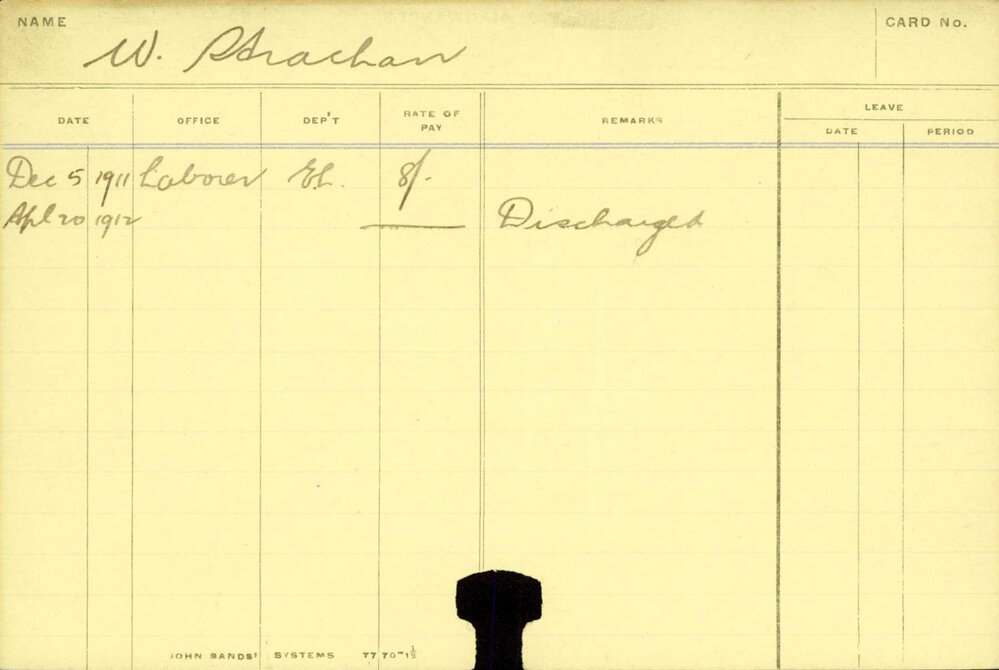 NAME W. Strachan CARD No.
DATE OFFICE DEP'T RATE OF PAY REMARKS LEAVE
DATE PERIOD
Dec 5 1911 Laborer EL. 8/-
Apl 20 1912 Discharged
JOHN SANDS' SYSTEMS 7770-1½